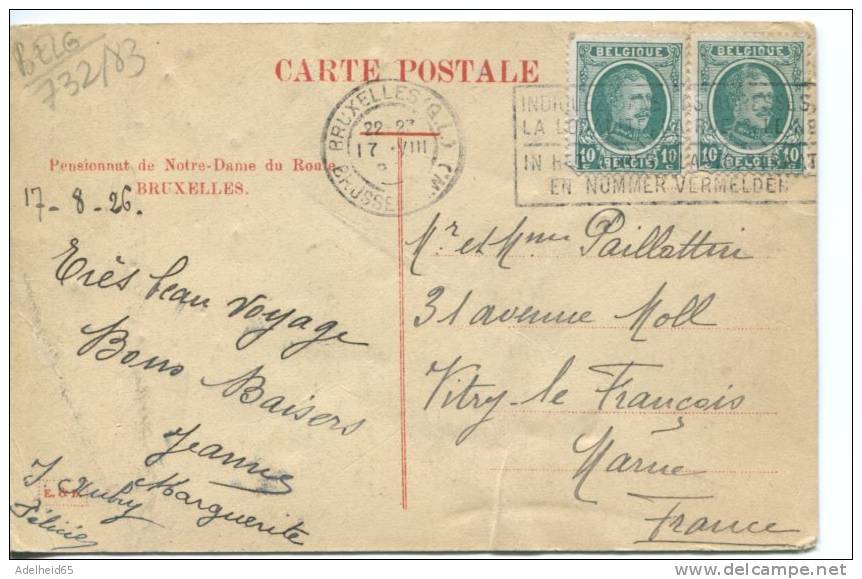 BELG
732/83
CARTE POSTALE
BELGIQUE
BELGIQUE
10 BELGIË 10
10 BELGIË 10
BRUXELLES (Q.L.)
22-23
17 VIII
BRUSSEL
INDIQUE
LA
IN HE
EN NUMMER VERMELDEN
Pensionnat de Notre-Dame du Roule
BRUXELLES.
17-8-26.
Très beau voyage
Bons Baisers
Jeanne
Marguerite
Félicie
E. & B.
Mr et Mme Paillottin
31 avenue Moll
Vitry-le François
Marne
France
Adelheid65
delcampe.net